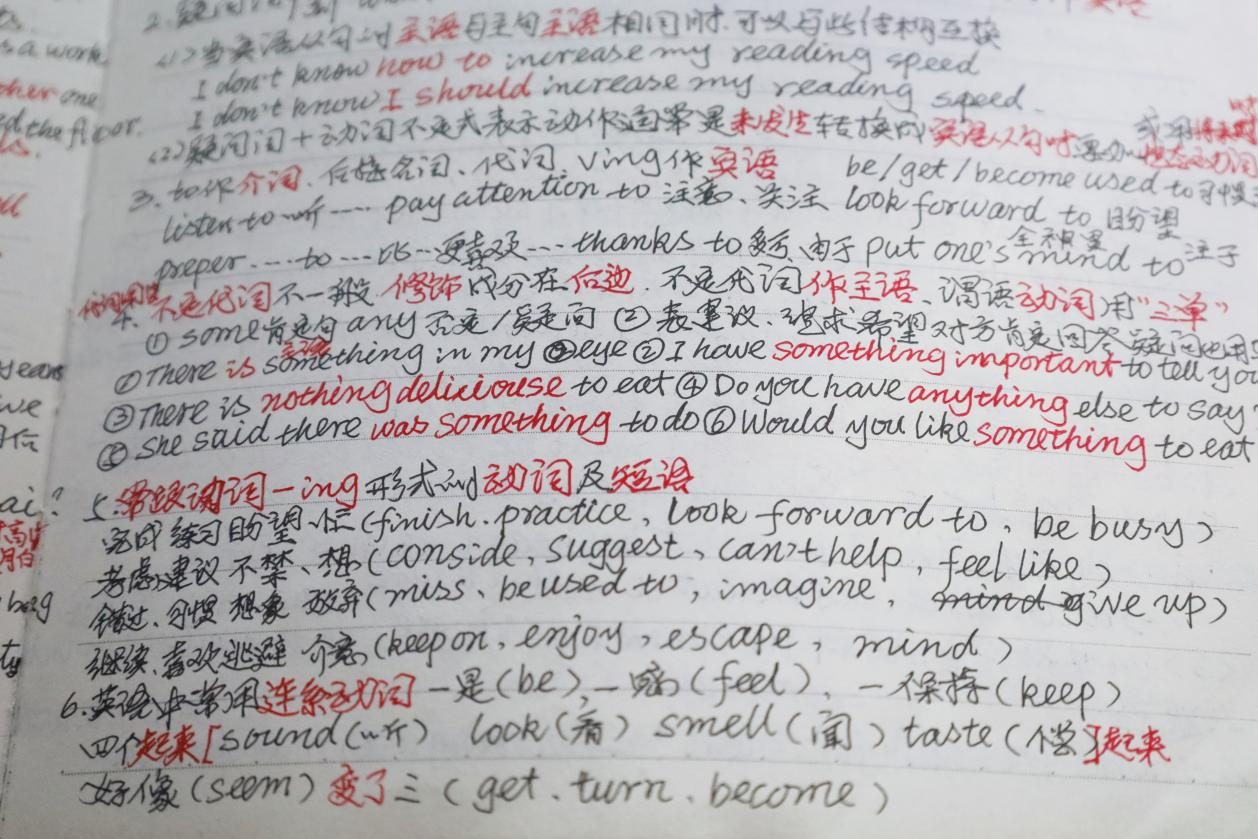 2.疑问词
(1)当宾语从句的主语与主句主语相同时.可以与此结构互换
I don't know how to increase my reading speed
I don't know I should increase my reading speed.
(2)疑问词+动词不定式表示动作通常是未发生转换成宾语从句时
3.to作介词、后接名词、代词、ving作宾语 be/get/become used to习惯
listen to 听.... pay attention to 注意、关注 look forward to 盼望
preper....to...比...更喜欢...thanks to 多亏、由于 put one's mind to 全神贯注于
4.不定代词不一般.修饰成分在后边.不定代词作主语、谓语动词用"三单"
①some肯定句any否定/疑问②表建议、请求希望对方肯定回答疑问也用
①There is something in my eye②I have something important to tell you
③There is nothing deliciouse to eat④Do you have anything else to say
⑤She said there was something to do⑥Would you like something to eat
5.常跟动词-ing形式的动词及短语
完成练习盼望忙(finish.practice,look forward to,be busy)
考虑建议不禁、想(conside,suggest,can't help,feel like)
错过、习惯想象放弃(miss、be used to,imagine,mind give up)
继续、喜欢逃避介意(keep on,enjoy,escape,mind)
6.英语中常用连系动词一是(be),一觉(feel),一保持(keep)
四个起来[sound(听) look(看) smell(闻) taste(尝)]起来
好像(seem)变了三(get.turn.become)